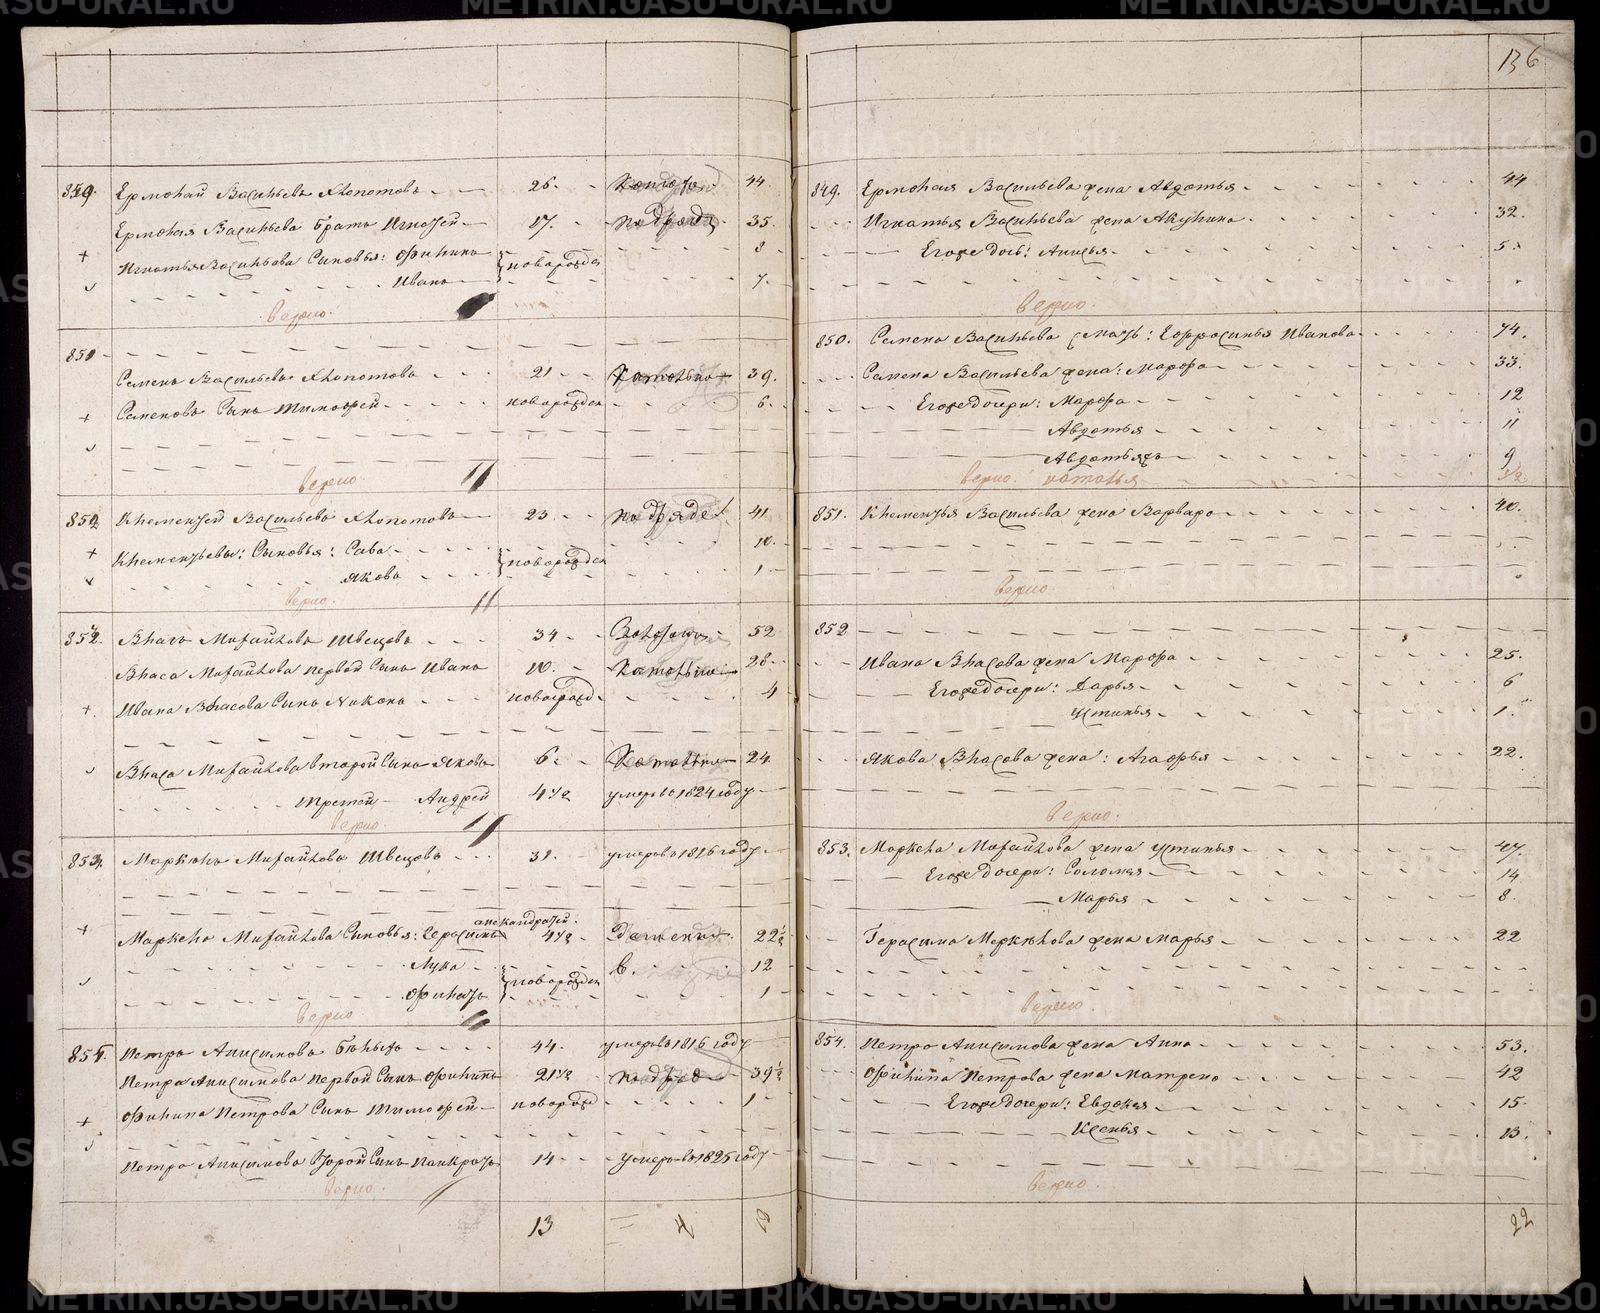 136
849. Ермолай Васильевъ Хлопотовъ 26. 44
Ермолая Васильева братъ Игнатей 17. 35.
Игнатья Васильева сыновья: Филипъ новорожден 8
Иванъ 7.
верно.
850
Семенъ Васильевъ Хлопотовъ 21 39.
Семеновъ сынъ Тимофей новорожден 6.
верно
851 Клементей Васильевъ Хлопотовъ 23 41
Клементьевы: сыновья: Сава новорожден 10.
Яковъ 1
верно.
852. Власъ Михайловъ Швецовъ 34 52
Власа Михайлова первой сынъ Иванъ 10. 28
Ивана Власова сынъ Никонъ новорожд 4
Власа Михайлова второй сынъ Яковъ 6. 24
третей Андрей 4 1/2 умеръ в 1824 году
верно.
853. Маркелъ Михайловъ Швецовъ 31. умеръ в 1816 году
Маркела Михайлова сыновья: Герасимъ 4 1/2 22 1/2
Лука новорожден 12
Филатъ 1
верно
854. Петръ Анисимовъ 44. умеръ в 1816 году
Петра Анисимова первой сынъ Филипъ 21 1/2 39 1/2
Филипа Петрова сынъ Тимофей новорожд 1
Петра Анисимова второй сынъ Панкратъ 14 умеръ в 1825 году
верно.
13
849. Ермолая Васильева жена Авдотья 44
Игнатья Васильева жена Акулина 32.
Его же дочь: Анисья 5
верно.
850. Семена Васильева мать: Ефросинья Иванова 74.
Семена Васильева жена: Марфа 33.
Его же дочери: Марфа 12
Авдотья 11
Авдотья 9
верно. Наталья 1/2
851. Клементья Васильева жена Варвара 40.
верно
852
Ивана Власова жена Марфа 25.
Его же дочери: Дарья 6
Устинья 1.
Якова Власова жена: Агафья 22.
верно.
853. Маркела Михайлова жена Устинья 47.
Его же дочери: Соломея 14
Марья 8.
Герасима Маркелова жена Марья 22
верно.
854. Петра Анисимова жена Анна 53.
Филипа Петрова жена Матрена 42
Его же дочери: Евдокея 15
Ксенья 13.
верно.
22
METRIKI.GASO-URAL.RU